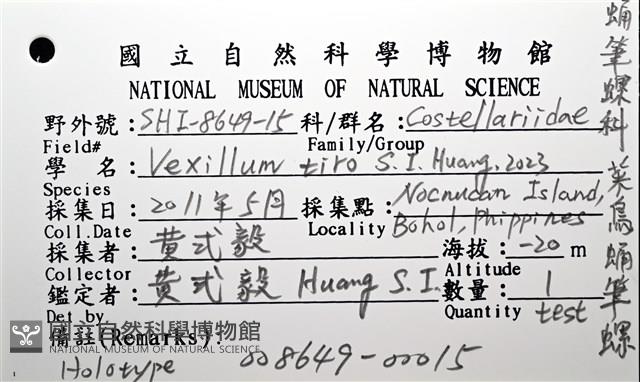 國立自然科學博物館
NATIONAL MUSEUM OF NATURAL SCIENCE
野外號：SHI-8649-15 科/群名：Costellariidae
Field# Family/Group
學 名：Vexillum tiro S.I. Huang, 2023
Species
採集日：2011年5月 採集點：Nocnucan Island,
Coll.Date Locality Bohol, Phippines
採集者：黃式毅 海拔：-20 m
Collector Altitude
鑑定者：黃式毅 Huang S.I. 數量：1
Det by. Quantity test
備註(Remarks):
Holotype 008649-00015
國立自然科學博物館
NATIONAL MUSEUM OF NATURAL SCIENCE
蛹筆螺科 菜鳥蛹筆螺